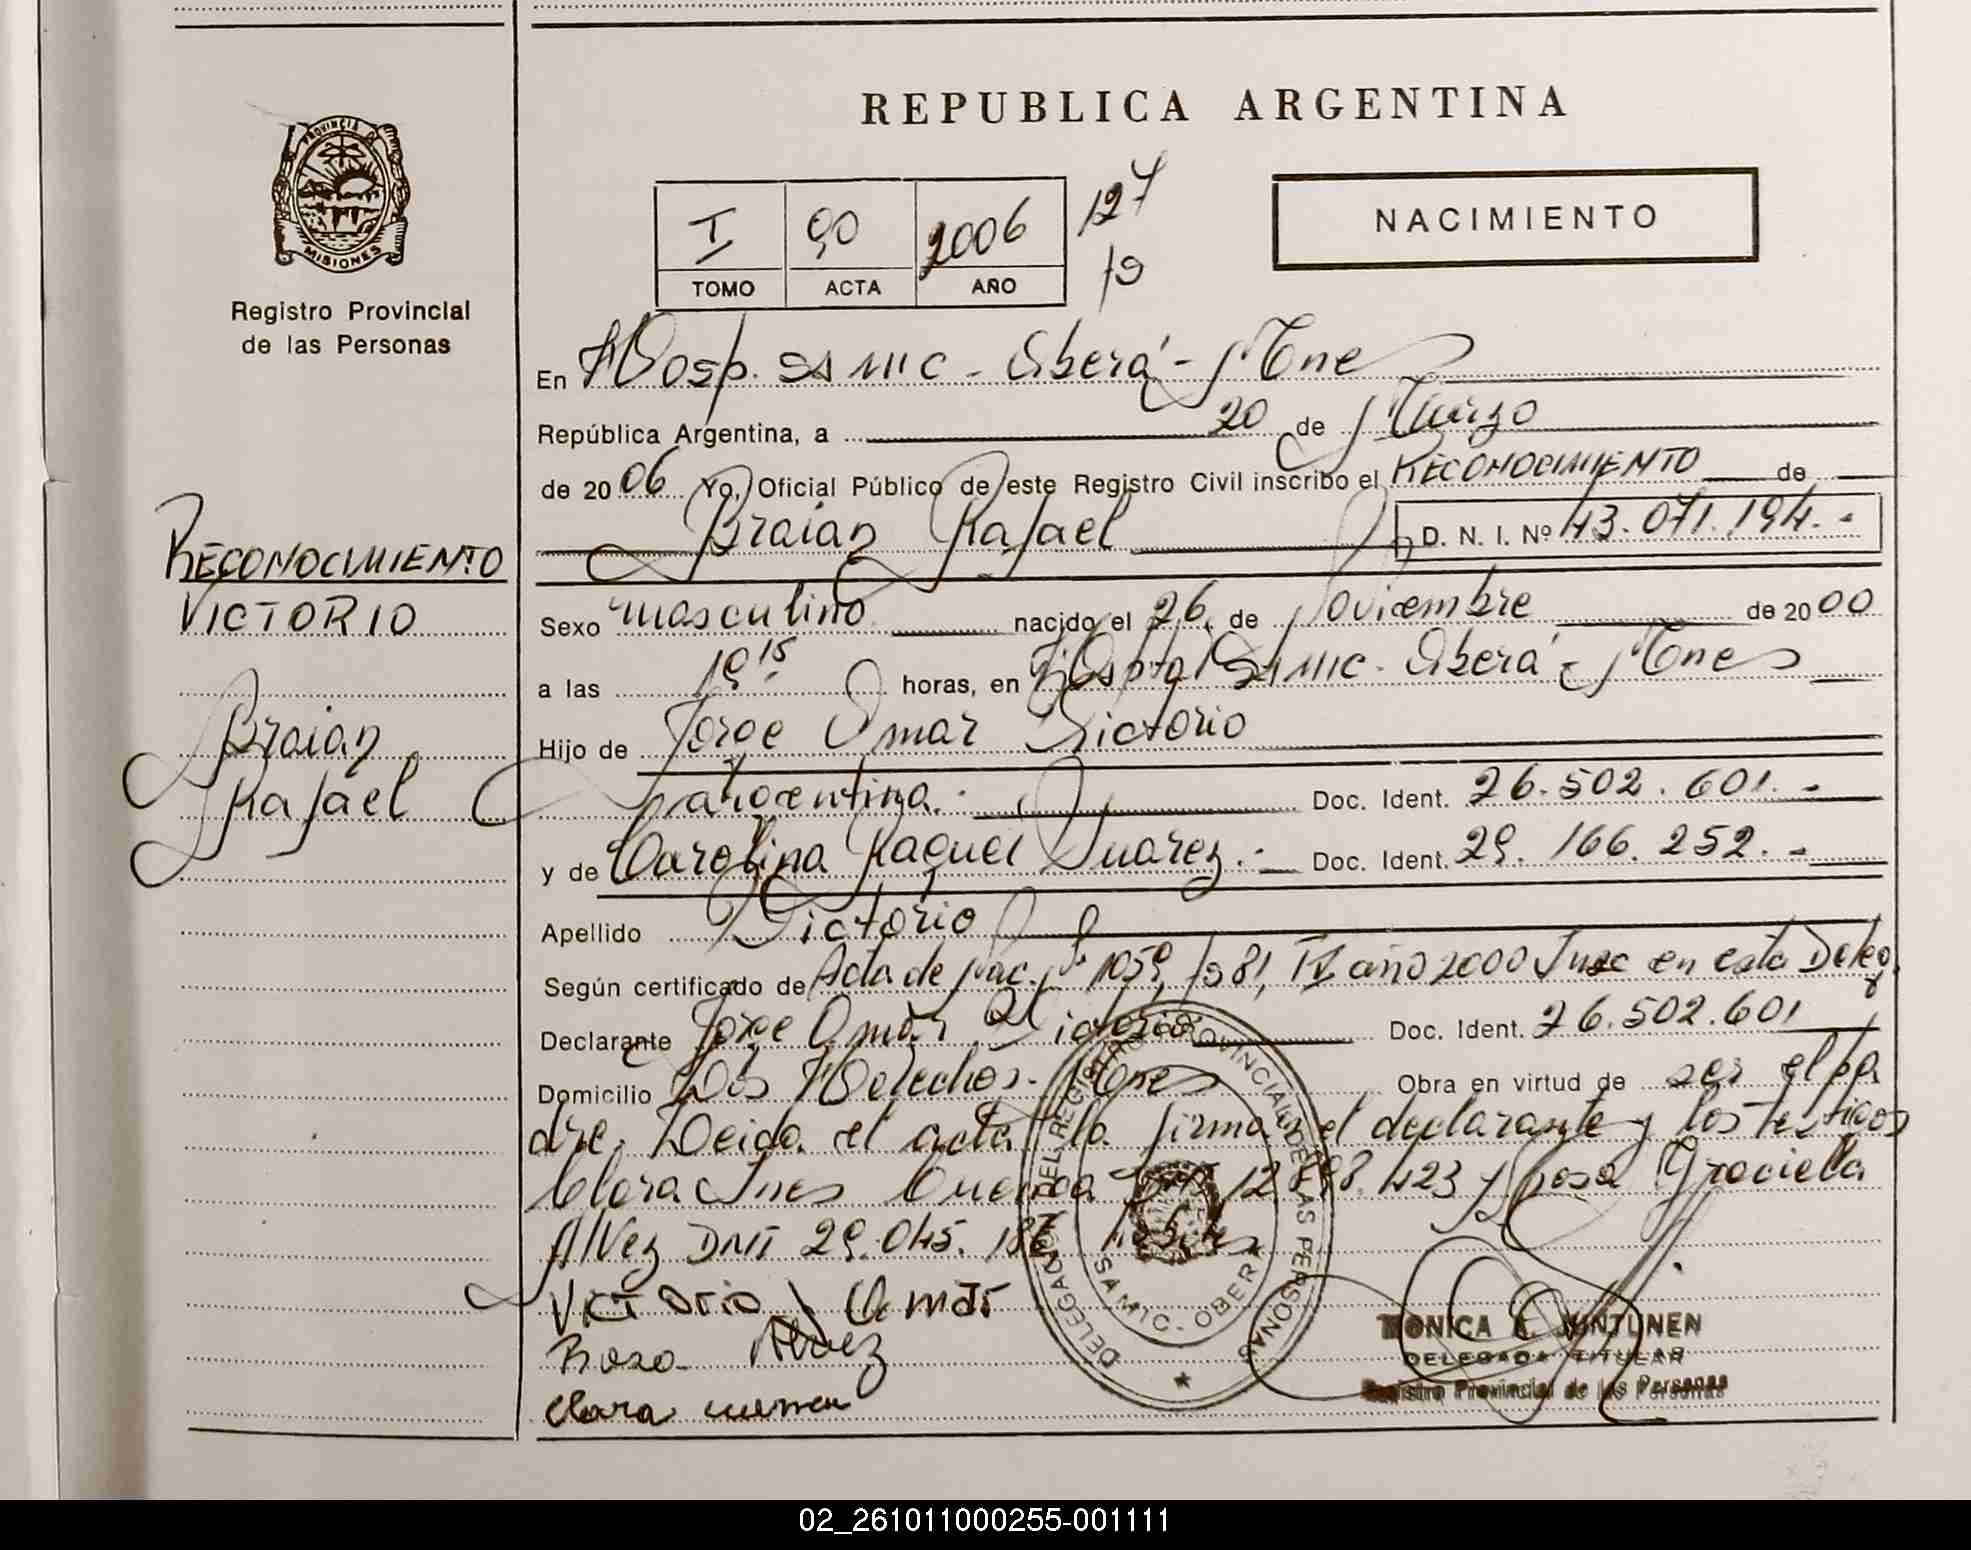 REPUBLICA ARGENTINA
PROVINCIA DE MISIONES
Registro Provincial
de las Personas
I 90 2006 127
TOMO ACTA AÑO
NACIMIENTO
En Hosp. SAMIC - Oberá - Mnes
República Argentina, a 20 de Marzo
de 2006 Yo, Oficial Público de este Registro Civil inscribo el RECONOCIMIENTO de
Braian Rafael D. N. I. Nº 43.071.194.-
RECONOCIMIENTO
VICTORIO
Braian
Rafael
Sexo masculino nacido el 26 de Noviembre de 2000
a las 19 15 horas, en Hospital SAMIC - Oberá - Mnes
Hijo de Jorge Omar Victorio
argentina.- Doc. Ident. 26.502.601.-
y de Carolina Raquel Suarez.- Doc. Ident. 29.166.252.-
Apellido Victorio
Según certificado de Acta de Nac. Nº 1059, fs 81, año 2000 Insc en esta Deleg.
Declarante Jorge Omar Victorio Doc. Ident. 26.502.601
Domicilio Los Helechos - Mnes Obra en virtud de ser el pa
dre. Leida el acta la firman el declarante y los testigos
Clara Ines 12.898.423 y Rosa Graciela
Alvez DNI 29.045.
Victorio Omar
Rosa Alvez
Clara
DELEGACION DEL REGISTRO PROVINCIAL DE LAS PERSONAS
SAMIC - OBERA
MONICA JUNTUNEN
DELEGADA TITULAR
Registro Provincial de las Personas
02_261011000255-001111